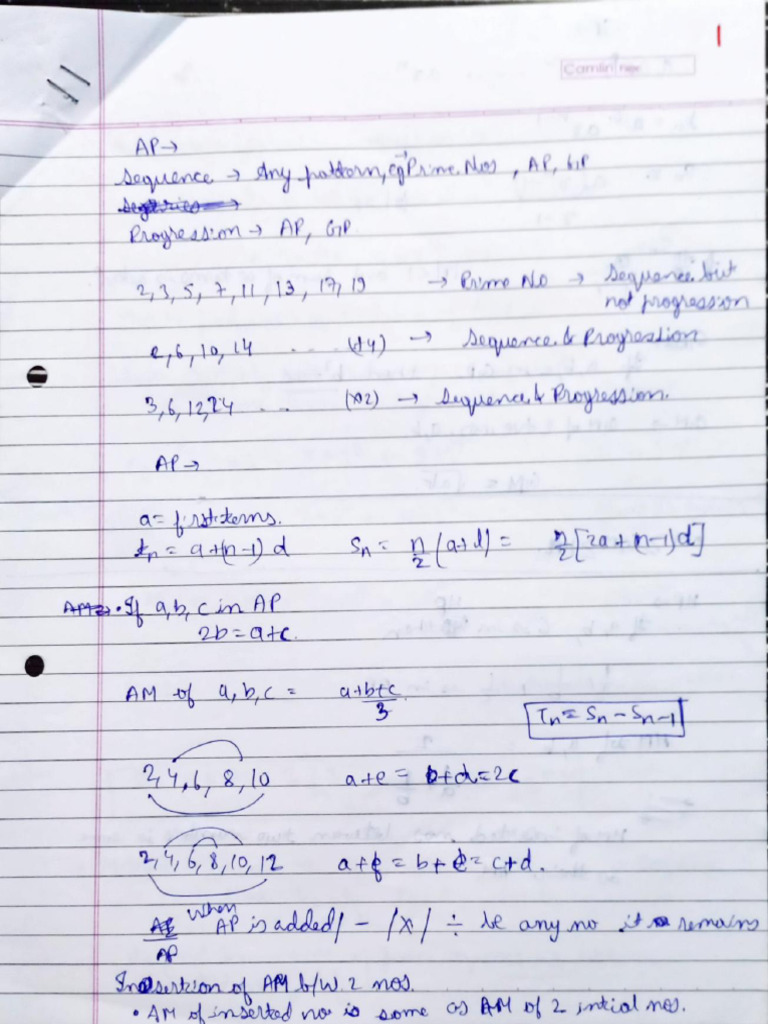 1
Camlin
AP→
Sequence → Any pattern, eg→ Prime Nos, AP, GP
Progression → AP, GP.
2, 3, 5, 7, 11, 13, 17, 19 → Prime No → Sequence but
not progression
2, 6, 10, 14 .... (+4) → Sequence & Progression
3, 6, 12, 24 .. .. (×2) → Sequence & Progression.
AP →
a = first terms.
tn = a+(n-1) d Sn = n/2 (a+l) = n/2 [2a+(n-1)d]
• If a, b, c in AP
2b = a+c.
AM of a, b, c = a+b+c/3
Tn = Sn - Sn-1
2, 4, 6, 8, 10 a+e = b+d = 2c
2, 4, 6, 8, 10, 12 a+f = b+e = c+d.
When AP is added / - / × / ÷ be any no it remains
AP
Insertion of AM b/w 2 nos.
• AM of inserted no is same as AM of 2 intial nos.